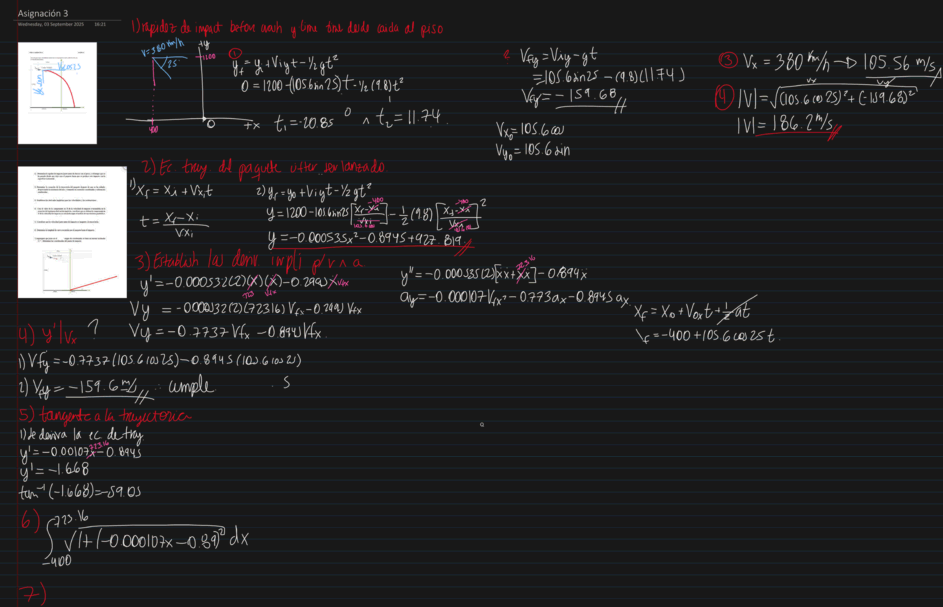 Asignación 3
Wednesday, 03 September 2025 16:21
1) rapidez de impact before crash y time tras desde caida al piso
V=380 km/h
25°
+y
1200
-400
0
+x
①
y_f = y_i + Viyt - 1/2 gt²
0 = 1200 - (105.6 sin 25)t - 1/2 (9.8)t²
t₁ = -20.8s ∧ t₂ = 11.74.
② V_fy = Viy - gt
= 105.6 sin 25 - (9.8)(11.74)
V_fy = -159.68
Vx₀ = 105.6 cos
Vy₀ = 105.6 sin
③ Vx = 380 km/h → 105.56 m/s
Vx Vy
④ |V| = √((105.6 cos 25)² + (-159.68)²)
|V| = 186.2 m/s
2) Ec tray del paquete after ser lanzado
1) X_f = X_i + Vx_i t
t = (X_f - X_i) / Vx_i
2) y_f = y_0 + Viyt - 1/2 gt²
y = 1200 - 105.6 sin 25 [(X_f - X_i)/Vx_i] - 1/2 (9.8) [(X_f - X_i)/Vx_i]²
-400 -400
y = -0.000535x² - 0.894s + 927.819
3) Establish las deriv impli p/ v ∧ a
y' = -0.000532(2)(x)(x) - 0.299x Vfx
723 Vfx
Vy = -0.000532(2)(72316) Vfx - 0.299 Vfx
Vy = -0.7737 Vfx - 0.894 Vfx
y" = -0.000535(2)[xx + xx] - 0.894x
723.16
ay = -0.000107 Vfx² - 0.773ax - 0.894s ax
X_f = X_0 + V_0x t + 1/2 at
X_f = -400 + 105.6 cos 25 t.
4) y'|Vx ?
1) Vfy = -0.7737(105.6 cos 25) - 0.894s (105.6 cos 25)
2) Vfy = -159.6 m/s ∴ cumple
. S
5) tangente a la trayectoria
1) se deriva la ec de tray
723.16
y' = -0.00107x - 0.894s
y' = -1.668
tan⁻¹ (-1.668) = -59.05
6) ∫_{-400}^{723.16} √(1 + (-0.000107x - 0.89)²) dx
7)